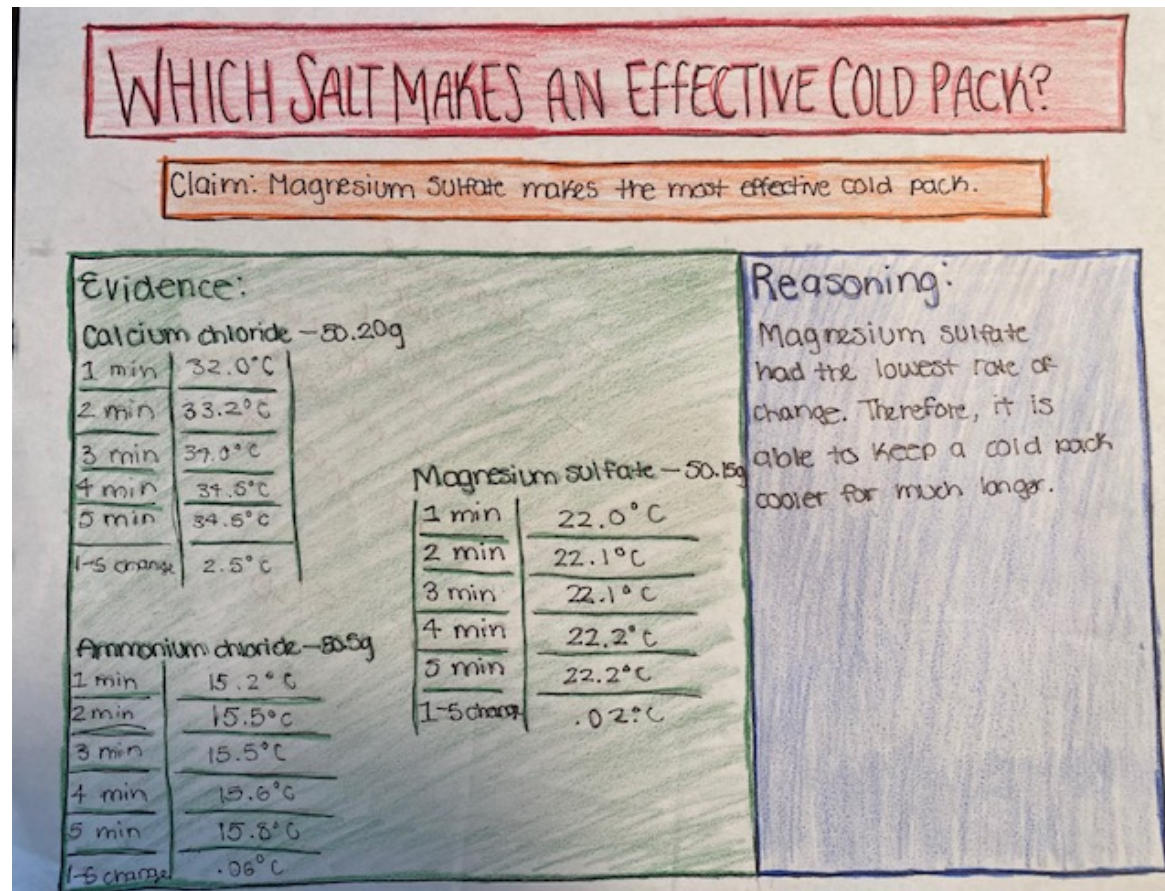 WHICH SALT MAKES AN EFFECTIVE COLD PACK?
Claim: Magnesium Sulfate makes the most effective cold pack.
Evidence:
Calcium chloride - 50.20g
1 min 32.0°C
2 min 33.2°C
3 min °C
4 min 34.5°C
5 min 34.5°C
1-5 change 2.5°C
Ammonium chloride - 50.5g
1 min 15.2°C
2 min 15.5°C
3 min 15.5°C
4 min 15.6°C
5 min 15.8°C
1-5 change .06°C
Magnesium sulfate - 50.15g
1 min 22.0°C
2 min 22.1°C
3 min 22.1°C
4 min 22.2°C
5 min 22.2°C
1-5 change .02°C
Reasoning:
Magnesium sulfate
had the lowest rate of
change. Therefore, it is
able to keep a cold pack
cooler for much longer.